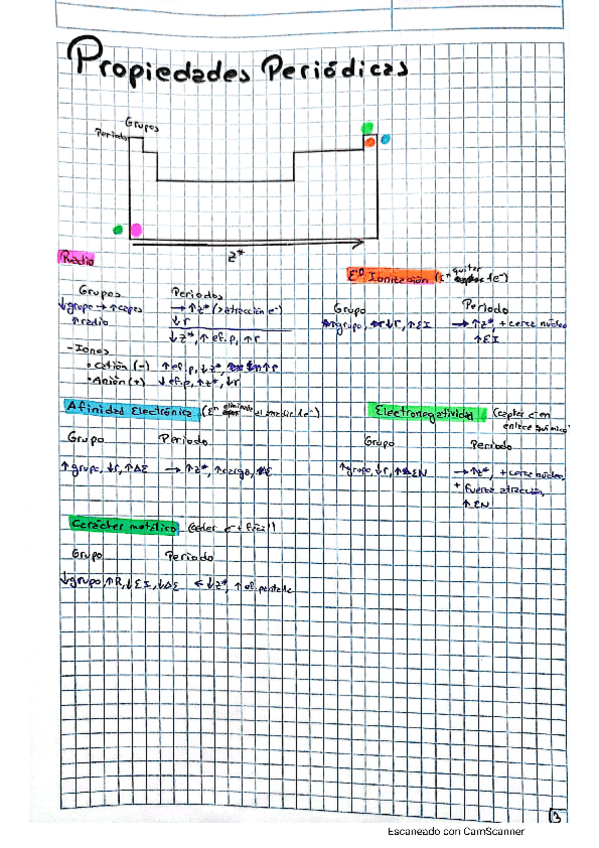 Propiedades Periódicas
Grupos
Periodo
z*
Radio
Grupos
↓grupo → ↑capas
↑radio
Periodos
→ ↑z* (> atracción e⁻)
↓r
↓z*, ↑ ef.p, ↑r
- Iones
• Catión (-) ↑ef.p, ↓z*, ↑r
• Anión (+) ↓ef.p, ↑z*, ↓r
Eº Ionización (En quitar 1e⁻)
Grupo
↑grupo, ↓r, ↑EI
Periodo
→ ↑z*, + cerca núcleo
↑EI
Afinidad Electrónica (En
1e⁻)
Grupo
↑grupo, ↓r, ↑ΔE
Periodo
→ ↑z*, ↑carga,
Electronegatividad (captar e⁻ en
enlace químico)
Grupo
↑grupo, ↓r, ↑EN
Periodo
→ ↑z*, + cerca núcleo,
+ fuerza atracción,
↑EN
Carácter metálico (ceder e⁻ + fácil)
Grupo
↓grupo, ↑R, ↓EI, ↓ΔE
Periodo
← ↓z*, ↑ ef.pantalla
3
Escaneado con CamScanner